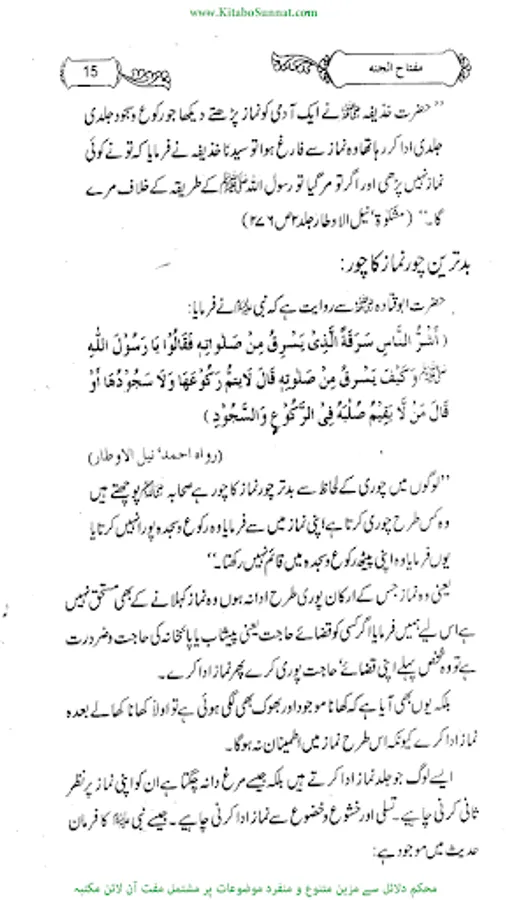 www.KitaboSunnat.com
مفتاح الجنہ
15
’’حضرت حذیفہ ﷜ نے ایک آدمی کو نماز پڑھتے دیکھا جو رکوع و سجود جلدی
جلدی ادا کر رہا تھا وہ نماز سے فارغ ہوا تو سیدنا حذیفہ نے فرمایا کہ تو نے کوئی
نماز نہیں پڑھی اور اگر تو مر گیا تو رسول اللہ ﷺ کے طریقہ کے خلاف مرے
گا۔‘‘ (مشکوٰۃ‘ نیل الاوطار جلد ۲ ص ۲۷۶)
بدترین چور نماز کا چور:
حضرت ابو قتادہ ﷜ سے روایت ہے کہ نبی ﷺ نے فرمایا:
(أَشَرُّ النَّاسِ سَرِقَةً الَّذِیْ يَسْرِقُ مِنْ صَلٰوتِهٖ فَقَالُوْا يَا رَسُوْلَ اللّٰهِ
ﷺ وَكَيْفَ يَسْرِقُ مِنْ صَلٰوتِهٖ قَالَ لَا يُتِمُّ رُكُوْعَهَا وَلَا سُجُوْدَهَا أَوْ
قَالَ مَنْ لَّا يُقِيْمُ صُلْبَهٗ فِی الرُّكُوْعِ وَالسُّجُوْدِ)
(رواہ احمد‘ نیل الاوطار)
’’لوگوں میں چوری کے لحاظ سے بدتر چور نماز کا چور ہے صحابہ ﷢ پوچھتے ہیں
وہ کس طرح چوری کرتا ہے اپنی نماز میں سے فرمایا وہ رکوع و سجدہ پورا نہیں کرتا یا
یوں فرمایا وہ اپنی پیٹھ رکوع و سجدہ میں قائم نہیں رکھتا۔‘‘
یعنی وہ نماز جس کے ارکان پوری طرح ادا نہ ہوں وہ نماز کہلانے کے بھی مستحق نہیں
ہے اس لیے ہمیں فرمایا اگر کسی کو قضائے حاجت یعنی پیشاب یا پاخانہ کی حاجت و ضرورت
ہے تو وہ شخص پہلے اپنی قضائے‘ حاجت پوری کرے پھر نماز ادا کرے۔
بلکہ یوں بھی آیا ہے کہ کھانا موجود اور بھوک بھی لگی ہوئی ہے تو اولاً کھانا کھا لے بعدہ
نماز ادا کرے کیونکہ اس طرح نماز میں اطمینان نہ ہوگا۔
ایسے لوگ جو جلد نماز ادا کرتے ہیں بلکہ جیسے مرغ دانہ چگتا ہے ان کو اپنی نماز پر نظر
ثانی کرنی چاہیے۔ تسلی اور خشوع و خضوع سے نماز ادا کرنی چاہیے۔ جیسے نبی ﷺ کا فرمان
حدیث میں موجود ہے:
محکم دلائل سے مزین متنوع و منفرد موضوعات پر مشتمل مفت آن لائن مکتبہ